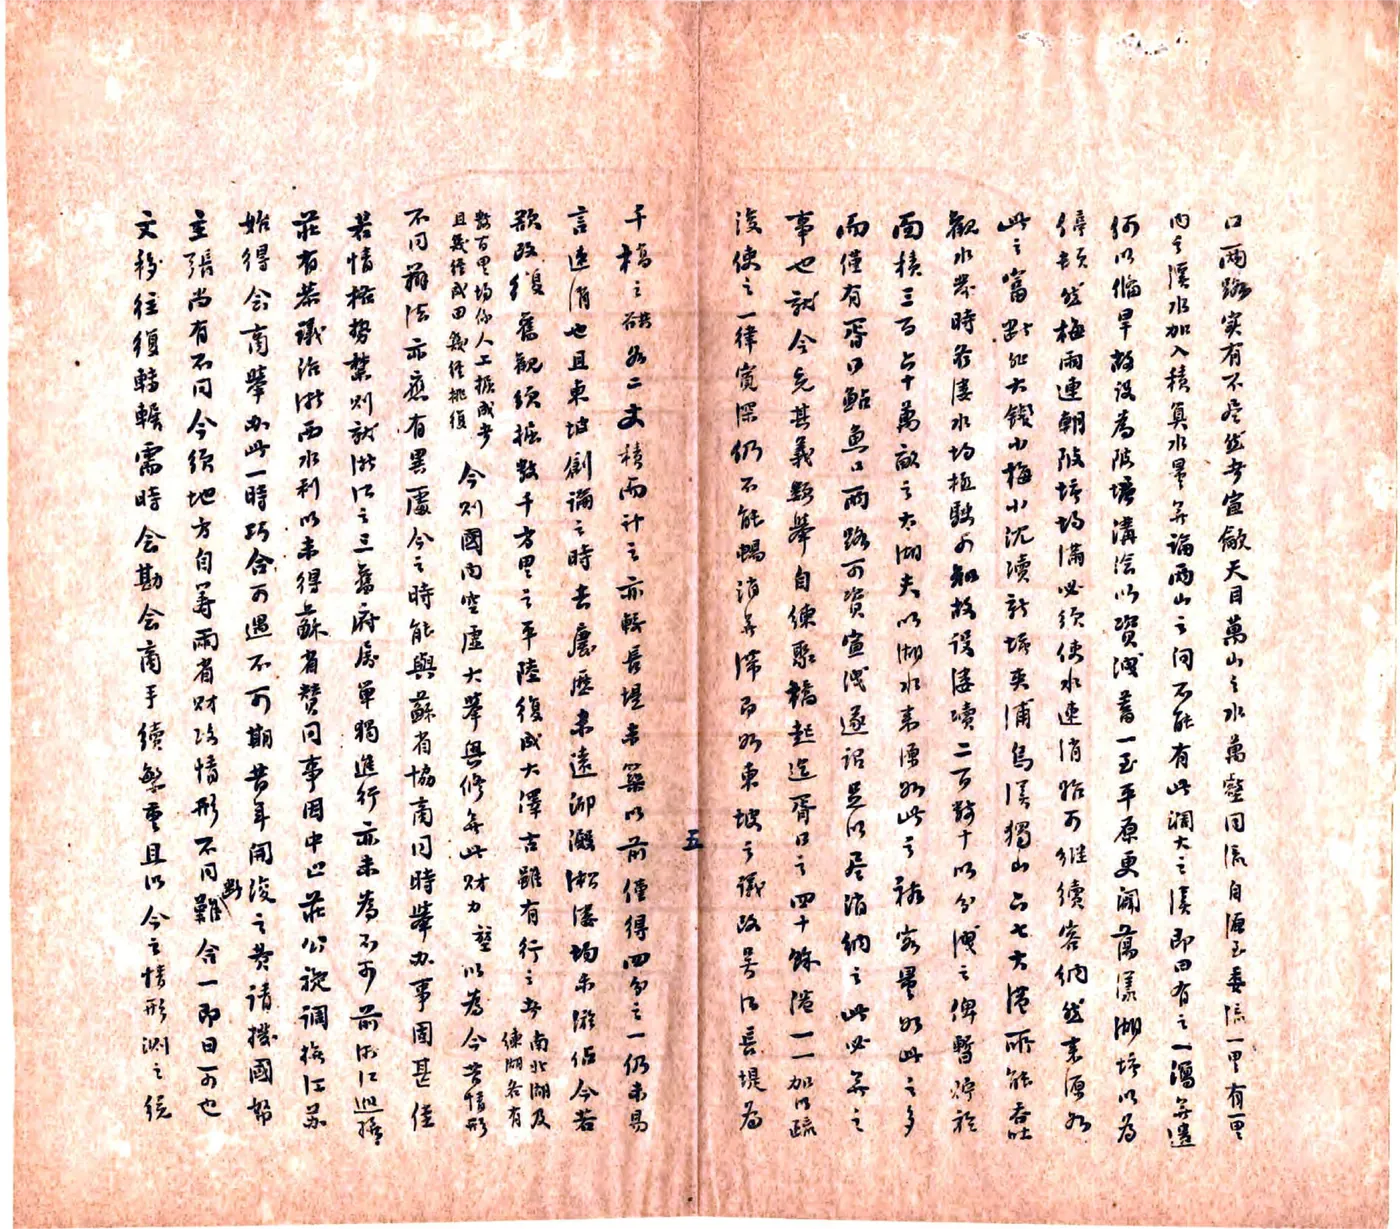 口兩路实有不尽然者宣歙天目萬山之水萬壑同流自源至委流一里有一里
內之溪水加入積算水量無論兩山之间不能有此濶大之溪即曰有之一瀉無遺
何以備旱故设為陂塘溝浍以資洩蓄一至平原更闻蕩漾湖塘以為
停顿然梅雨連朝陂塘均滿必须使水速消始可继續容納然来源如
此之富断非大錢小梅小沈瀆新塘夾浦烏溪獨山六七大港所能吞吐
觀水発時各溇水均極駛可知故设溇瀆二百数十以分洩之俾暫潴於
面積三百六十萬畝之太湖夫以湖水来源如此之夥容量如此之多
而僅有胥口鮎魚口兩路可資宣洩遂谓足以尽消納之此必無之
事也就今充其義類举自練聚橋起迄胥口之四十餘港一一加以疏
浚使之一律寬深仍不能暢消無滞而如東坡之議改吳江長堤為
千橋之谷各二丈積而计之亦較長堤未築以前僅得四分之一仍未易
言速消也且東坡創論之時去慶歷未遠泖澱淞溇均未淤佔今若
欲改復舊觀须掘数千方里之平陸復成大澤古雖有行之者 南北湖及練湖各有
数百里均係人工掘成者且幾经成田幾经挑復 今则國内空虛大舉興修無此财力 以為今昔情形
不同辦法亦應有異處今之時能與蘇省協商同時举办事固甚佳
若情格勢禁则就浙江之三舊府属單獨進行亦未為不可前浙江巡撫
莊有恭議治浙西水利以未得蘇省赞同事因中止莊公旋調撫江苏
始得会商举办此一時巧合可遇不可期昔年開浚之费请撥國帑
主張尚有不同今须地方自筹兩省财政情形不同断難合一即曰可也
文移往復轉輾需時会勘会商手續繁重且以今之情形測之從
五